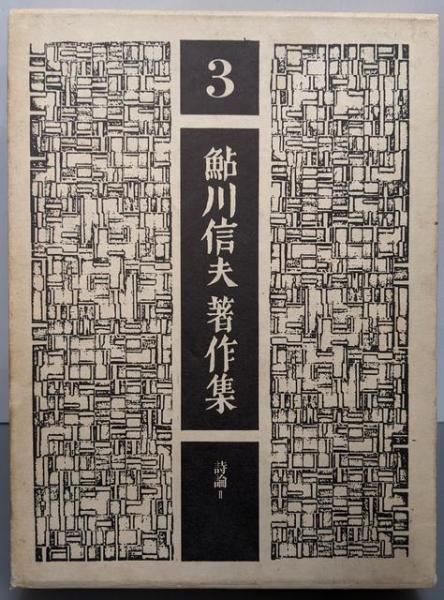 3
鮎川信夫著作集
詩論Ⅱ